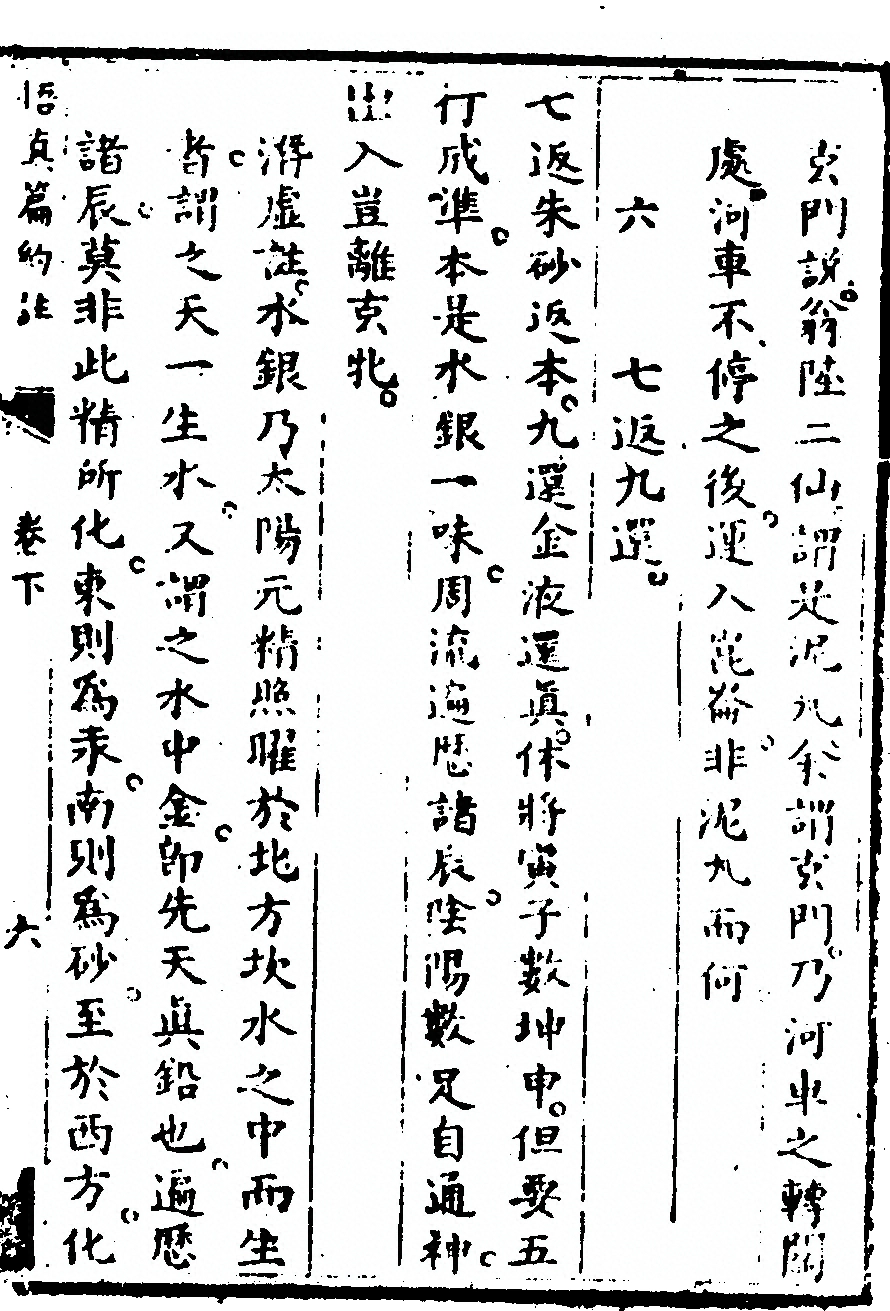 玄門說翁陸二仙謂是泥丸余謂玄門乃河車之轉關
處河車不停之後運入崑崙非泥丸而何
六　七返九還
七返朱砂返本九還金液還眞休將寅子數坤申但要五
行成準本是水銀一味周流遍歷諸辰陰陽數足自通神
出入豈離玄牝
潛虛註水銀乃太陽元精照曜於北方坎水之中而生
者謂之天一生水又謂之水中金卽先天眞鉛也遍歷
諸辰莫非此精所化東則爲汞南則爲砂至於西方化
悟真篇約註　卷下　六